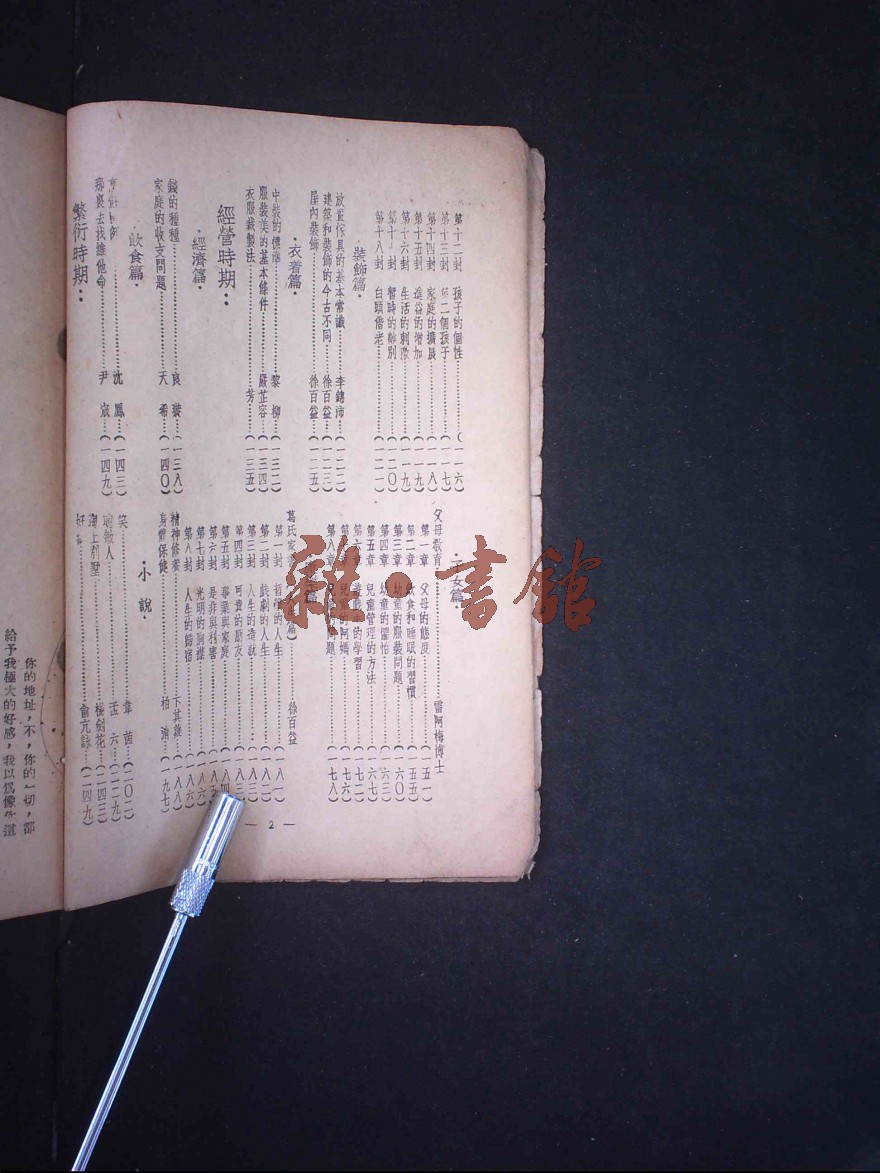 第十二封 孩子的個性…………（一一六）
第十三封 第二個孩子…………（一一七）
第十四封 家庭的擴展…………（一一八）
第十五封 進益的增加…………（一一九）
第十六封 生活的刺激…………（一一九）
第十七封 暫時的離別…………（一二〇）
第十八封 白頭偕老…………（一二一）
·裝飾篇·
放置傢具的基本常識…………李錦沛（一二二）
建築和裝飾的今古不同…………徐百益（一二三）
屋內裝飾…………徐百益（一二五）
·衣着篇·
中裝的標準…………黎 柳（一三二）
服裝美的基本條件…………嚴芷容（一三四）
衣服裁製法…………芳（一三五）
經營時期：
·經濟篇·
錢的種種…………良 裝（一三八）
家庭的收支問題…………天 希（一四〇）
·飲食篇·
…………沈 鳳（一四三）
那裏去找維他命…………尹 宸（一四九）
繁衍時期：
·子女篇·
父母教育…………雷阿梅博士
第一章 父母的態度…………（一五一）
第二章 飲食和睡眠的習慣…………（一五五）
第三章 幼童的服裝問題…………（一六〇）
第四章 幼童的懼怕…………（一六三）
第五章 兒童管理的方法…………（一六七）
第六章 遊戲中的學習…………（一七二）
第七章 兒童的阿媽…………（一七六）
第八章 兒 問題…………（一七八）
篇
葛氏家 篇）…………徐百益
第一封 哲學的人生…………（一八一）
第二封 戲劇的人生…………（一八二）
第三封 人生的造就…………（一八二）
第四封 可貴的朋友…………（一八三
第五封 事業與家庭…………（一八四
第六封 是非與利害…………（一八五
第七封 光明的胸襟…………（一八六）
第八封 人生的歸宿…………（一八六）
精神修養…………卞其薐（一八八）
身體保健…………柏 濱（一九七）
·小 說·
笑…………韋 茵（二〇二）
人…………孟 六（二二九）
海上別墅…………楊劍花（二四三）
好 …………俞亢詠（二四九）
— 2 —
你的地址，不，你的一切，都
給予我極大的好感，我以爲像你這
雜·書館